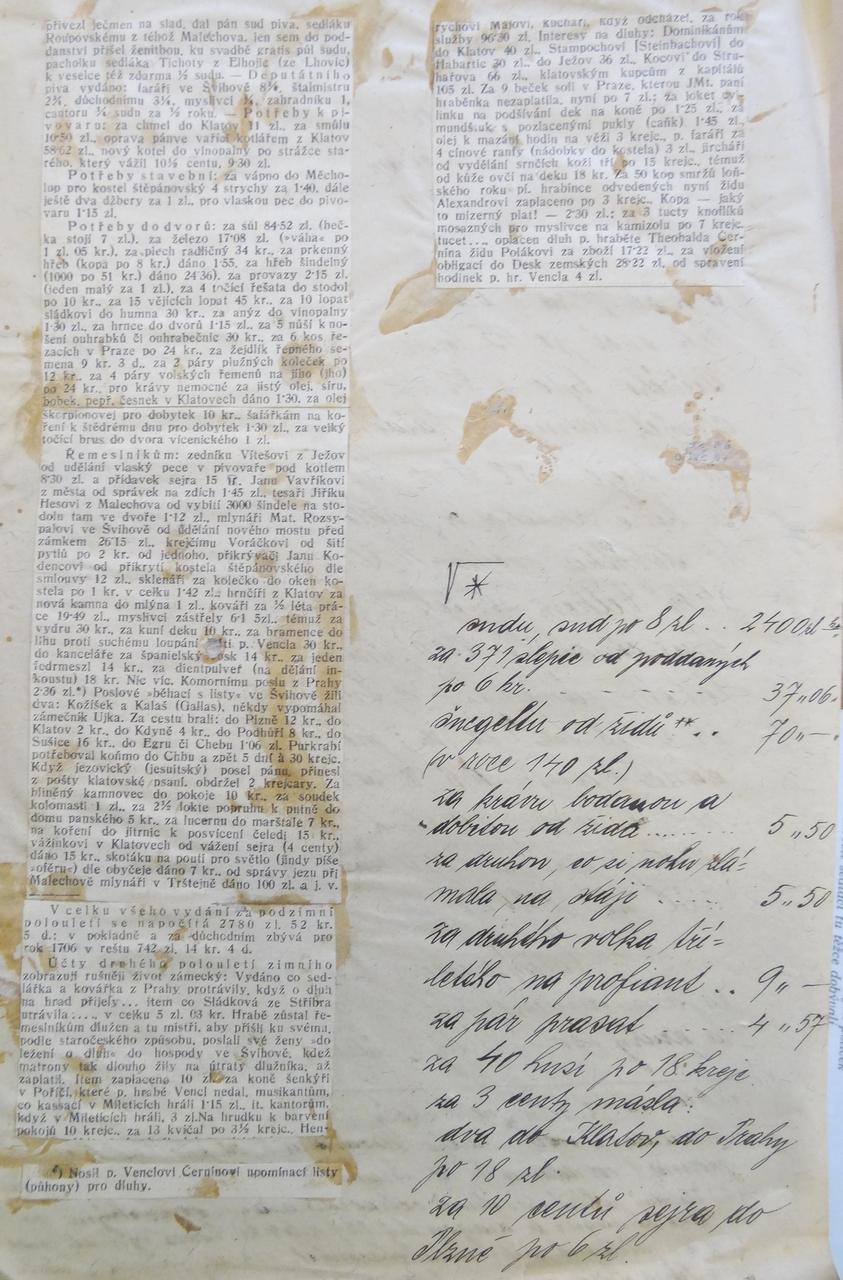 přivezl ječmen na slad, dal pán sud piva, sedláku
Roupovskému z téhož Malechova, jen sem do pod-
danství přišel ženitbou, ku svadbě gratis půl sudu,
pacholku sedláka Tichoty z Elhojic (ze Lhovic)
k veselce též zdarma ½ sudu. — Deputátního
piva vydáno: faráři ve Švihově 8¼, štalmistru
2¾, důchodnímu 3¼, myslivci ¼, zahradníku 1,
cautoru ¾ sudu za ½ roku. — Potřeby k pi-
vovaru: za chmel do Klatov 11 zl., za smůlu
10·50 zl., oprava pánve vařící kotlářem z Klatov
58·62 zl., nový kotel do vinopalny po strážce sta-
rého, který vážil 10½ centu, 9·30 zl.
Potřeby stavební: za vápno do Měcho-
lup pro kostel štěpánovský 4 strychy za 1·40, dále
ještě dva džbery za 1 zl., pro vlaskou pec do pivo-
varu 1·15 zl.
Potřeby do dvorů: za sůl 84·52 zl. (beč-
ka stojí 7 zl.), za železo 17·08 zl. (»váha« po
1 zl. 05 kr.), za plech radličný 34 kr., za prkenný
hřeb (kopa po 8 kr.) dáno 1·55, za hřeb šindelný
(1000 po 51 kr.) dáno 24·36), za provazy 2·15 zl.
(jeden malý za 1 zl.), za 4 točicí řešata do stodol
po 10 kr., za 15 vějících lopat 45 kr., za 10 lopat
sládkovi do humna 30 kr., za anýz do vinopalny
1·30 zl., za hrnce do dvorů 1·15 zl., za 5 nůší k no-
šení ouhrabků či ouhrabečnic 30 kr., za 6 kos ře-
zacích v Praze po 24 kr., za žejdlík řepného se-
mena 9 kr. 3 d., za 2 páry plužných koleček po
12 kr., za 4 páry volských řemenů na jiho (jho)
po 24 kr., pro krávy nemocné za listý olej, síru,
bobek, pepř, česnek v Klatovech dáno 1·30, za olej
škorpionovej pro dobytek 10 kr., šafářkám na ko-
ření k štědrému dnu pro dobytek 1·30 zl., za velký
točící brus do dvora vícenického 1 zl.
Řemeslníkům: zedníku Vítešovi z Ježov
od udělání vlaský pece v pivovaře pod kotlem
8·30 zl. a přídavek sejra 15 ℔. Janu Vavříkovi
z města od správek na zdích 1·45 zl., tesaři Jiříku
Hesovi z Malechova od vybití 3000 šindele na sto-
dolu tam ve dvoře 1·12 zl., mlynáři Mat. Rozsy-
palovi ve Švihově od udělání nového mostu před
zámkem 26·15 zl., krejčímu Voráčkovi od šití
pytlů po 2 kr. od jednoho, přikrývači Janu Ko-
dencovi od přikrytí kostela štěpánovského dle
smlouvy 12 zl., sklenáři za kolečko do oken ko-
stela po 1 kr. v celku 1·42 zl., hrnčíři z Klatov za
nová kamna do mlýna 1 zl., kováři za ½ léta prá-
ce 19·49 zl., myslivci zástřely 6·1 5zl., témuž za
vydru 30 kr., za kuní deku 10 kr., za bramence do
lihu proti suchému loupání p. Vencla 30 kr.,
do kanceláře za španielský 14 kr., za jeden
fedrmeszl 14 kr., za dientpulver (na dělání in-
koustu) 18 kr. Nic víc. Komornímu poslu z Prahy
2·36 zl.*) Poslové »běhací s listy« ve Švihově žili
dva: Kožíšek a Kalaš (Gallas), někdy vypomáhal
zámečník Ujka. Za cestu brali: do Plzně 12 kr., do
Klatov 2 kr., do Kdyně 4 kr., do Podhůří 8 kr., do
Sušice 16 kr., do Egru či Chebu 1·06 zl. Purkrabí
potřeboval koňmo do Chbu a zpět 5 dní à 30 krejc.
Když jezovický (jesuitský) posel pánu, přinesl
z pošty klatovské psaní, obdržel 2 krejcary. Za
hliněný kamnovec do pokoje 10 kr., za soudek
kolomasti 1 zl., za 2½ lokte popruhu k putně do
domu panského 5 kr., za lucernu do marštale 7 kr.,
na koření do jitrnic k posvícení čeledi 15 kr.,
vážínkovi v Klatovech od vážení sejra (4 centy)
dáno 15 kr., skotáku na pouti pro světlo (jindy píše
»oféru«) dle obyčeje dáno 7 kr., od správy jezu při
Malechově mlynáři v Trštejně dáno 100 zl. a j. v.
V celku všeho vydání za podzimní
polouletí se napočítá 2780 zl. 52 kr.
5 d.; v pokladně a za důchodním zbývá pro
rok 1706 v reštu 742 zl. 14 kr. 4 d.
Účty druhého polouletí zimního
zobrazují rušněji život zámecký: Vydáno co sed-
lářka a kovářka z Prahy protrávily, když o dluh
na hrad přijely... item co Sládková ze Stříbra
utrávila..., v celku 5 zl. 03 kr. Hrabě zůstal ře-
meslníkům dlužen a tu mistři, aby přišli ku svému,
podle staročeského způsobu, poslali své ženy »do
ležení o dluh« do hospody ve Švihově, kdež
matrony tak dlouho žily na útraty dlužníka, až
zaplatil. Item zaplacena 10 zl. za koně šenkýři
v Poříčí, které p. hrabě Vencl nedal, musikantům,
co kassací v Mileticích hráli 1·15 zl., it. kantorům,
když v Mileticích hráli, 3 zl. Na hrudku k barvení
pokojů 10 krejc., za 13 kvíčal po 3½ krejc., Hen-
*) Nosil p. Venclovi Černínovi upomínací listy
(půhony) pro dluhy.
rychovi Májovi, kuchaři, když odcházel, za rok
služby 96·30 zl. Interesy na dluhy: Dominikánům
do Klatov 40 zl., Stampochovi [Steinbachovi] do
Habartic 30 zl., do Ježov 36 zl., Kocovi do Stru-
hařova 66 zl., klatovským kupcům z kapitálů
105 zl. Za 9 beček soli v Praze, kterou JMt. paní
hraběnka nezaplatila, nyní po 7 zl.; za loket cvi-
linku na podšívání dek na koně po 1·25 zl., za
mundštuk s pozlacenými pukly (caňk) 1·45 zl.,
olej k mazání hodin na věži 3 krejc., p. faráři za
4 cínové ranfy (nádobky do kostela) 3 zl., jircháři
od vydělání srnčích koží tří po 15 krejc., témuž
od kůže ovčí na deku 18 kr. Za 50 kop smržů loň-
ského roku pí. hrabince odvedených nyní židu
Alexandrovi zaplaceno po 3 krejc. Kopa — jaký
to mizerný plat! — 2·30 zl.; za 3 tucty knoflíků
mosazných pro myslivce na kamizolu po 7 krejc.
tucet..., oplacen dluh p. hraběte Theobalda Čer-
nína židu Polákovi za zboží 17·22 zl., za vložení
obligací do Desk zemských 28·22 zl., od spravení
hodinek p. hr. Vencla 4 zl.
sudu, sud po 8 zl. .. 2400 zl
za 371 slepic od poddaných
po 6 kr. - - - - 37„06.
šnegeltu od židů **.. 70„—.
(v roce 140 zl.)
za krávu bodanou a
dobitou od žida ........ 5„50
za druhou, co si nohu zlá-
mala, na stáji ..... 5„50
za druhého volka tří-
letého na profiant .. 9„—
za pár prasat ..... 4„57
za 40 husí po 18 krejc.
za 3 centy másla:
dva do Klatov, do Prahy
po 18 zl.
za 10 centů sejra do
Plzně po 6 zl.